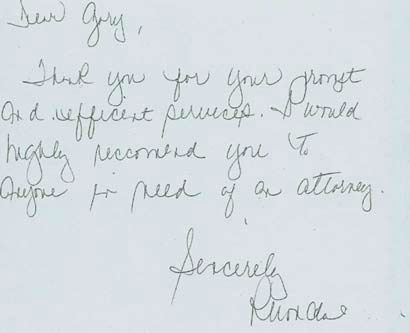 Dear Gary,
Thank you for your prompt
and efficient services. I would
highly reccomend you to
anyone in need of an attorney.
Sincerely
Rhonda